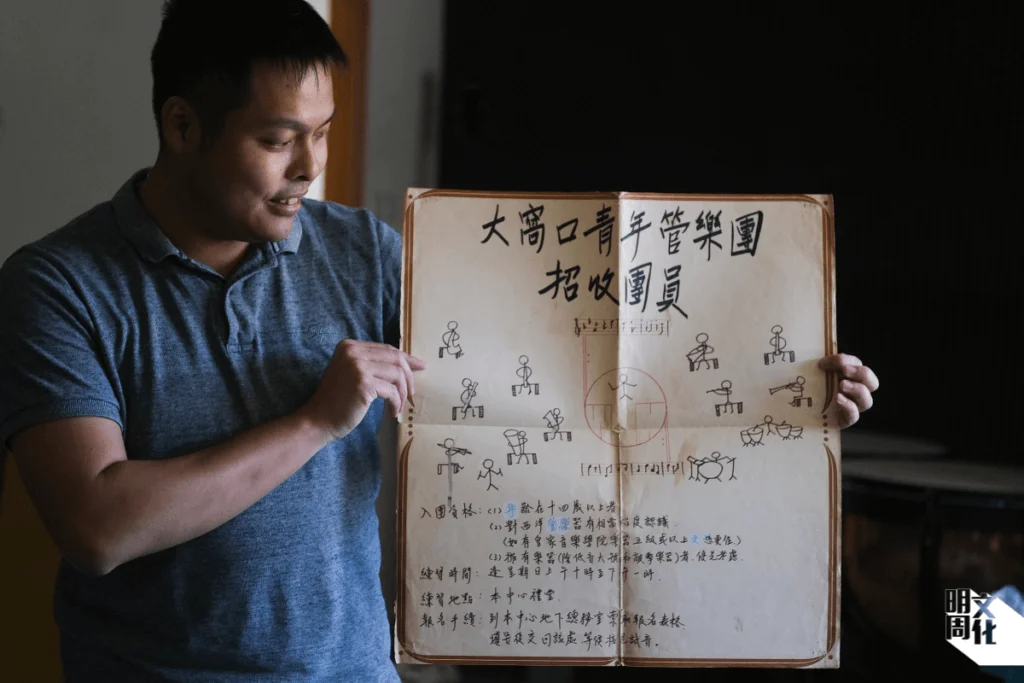 大窩口青年管樂團
招收團員
入團資格：(1) 年齡在十四歲以上者
(2) 對西洋管樂器有相當程度認識.
(如有皇家音樂學院樂器五級或以上更佳)
(3) 擁有樂器(除低音大號和敲擊樂器)者,優先考慮.
練習時間：逢星期日上午十時至下午一時.
練習地點：本中心禮堂
報名手續：到本中心地下總務室索取報名表格
填妥後交回該處等候試音。
明周文化